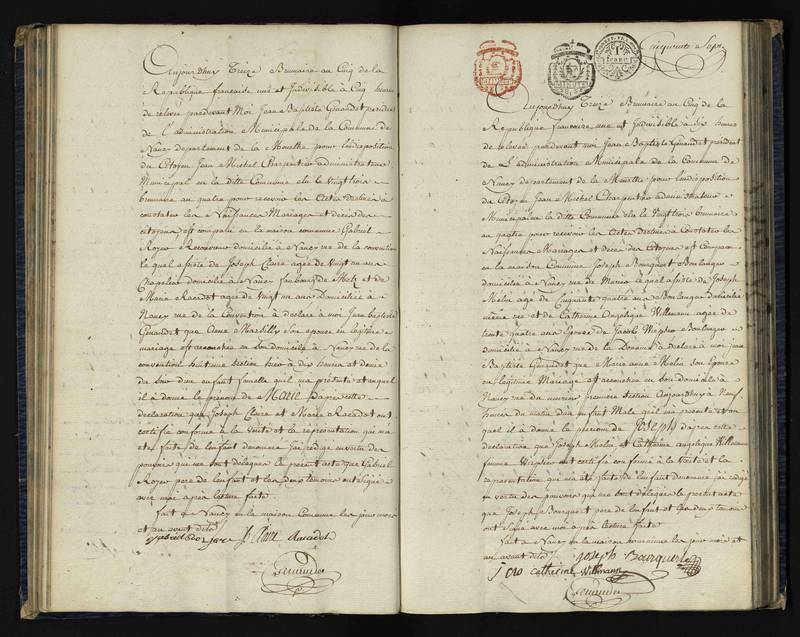 Aujourd'huy Treize Brumaire an Cinq de la
Republique francaise une et Indivisible à Cinq heures
de relevée pardevant Moi Jean Baptiste Geraudot president
de L'administration Municipale de la Commune de
Nancy departement de la Meurthe pour lindisposition
du Citoyen Jean Michel Charpentier administrateur
Municipal en la ditte Commune elu le Vingt trois
brumaire an quatre pour recevoir les Actes destinés à
constater les Naissances Mariages et décès des
citoyens est comparu en la maison commune Gabriel
Royer domicilié à Nancy rue de la convention
le quel assisté de Joseph Claire agé de Vingt un ans
Chapelier domicilié à Nancy faubourg de Metz et de
Marie agée de Vingt un ans Domiciliée à
Nancy rue de la Convention à declaré à moi Jean baptiste
que Anne Marsilly son epouse en legitime
mariage est accouchée en son domicile à Nancy rue de la
convention huitieme section hier à dix heures et demie
du soir d'un enfant femelle qui m'a présenté et auquel
il a donné le prenom de MARIE Dapres cette
declaration que Joseph Claire et Marie ont
certifié conforme à la Vérité et la representation qui m'a
été faite de lenfant denommé j'ai rédigé en vertu des
pouvoirs qui me sont délégués le present acte que Gabriel
Royer pere de lenfant et les deux temoins ont signé
avec moi apres lecture faite
fait à Nancy en la maison Commune les jour mois
et an avant dits
J. Claire
1 franc
Cinquante Sept
Aujourd'huy Treize Brumaire an Cinq de la
Republique francaise une et Indivisible à Six heures
de relevée pardevant moi Jean Baptiste president
de L'administration Municipale de la Commune de
Nancy departement de la Meurthe pour lindisposition
du Citoyen Jean Michel Charpentier administrateur
Municipal en la ditte Commune elu le Vingt trois brumaire
an quatre pour recevoir les Actes Destinés à Constater les
Naissances Mariages et décès des Citoyens est Comparu
en la maison Commune Joseph Bourquet Boulanger
domicilié à Nancy rue le quel assisté de Joseph
Melin agé de Cinquante quatre ans Boulanger domicilié
même rue et de Catherine Angelique Willemann agée de
trente quatre ans epouse de Jacob Boulanger
domiciliée à Nancy rue de la Douane à declaré à moi Jean
Baptiste que Marie anne Melin son epouse
en legitime Mariage est accouchée en son domicile à
Nancy rue premiere section Aujourd'huy à Neuf
heures du matin d'un enfant Male qui m'a presenté et au
quel il a donné le prenom de JOSEPH dapres cette
declaration que Joseph Melin et Catherine angelique Willemann
femme ont certifié conforme à la vérité et la
representation qui m'a été faite de lenfant denommé j'ai redigé
en vertu des pouvoirs qui me sont délégués le present acte
que Joseph Bourquet pere de lenfant et les deux temoins
ont signé avec moi apres lecture faite
fait à Nancy en la maison commune les jour mois et
an avant dits
joseph Bourquet
catherine Willmann